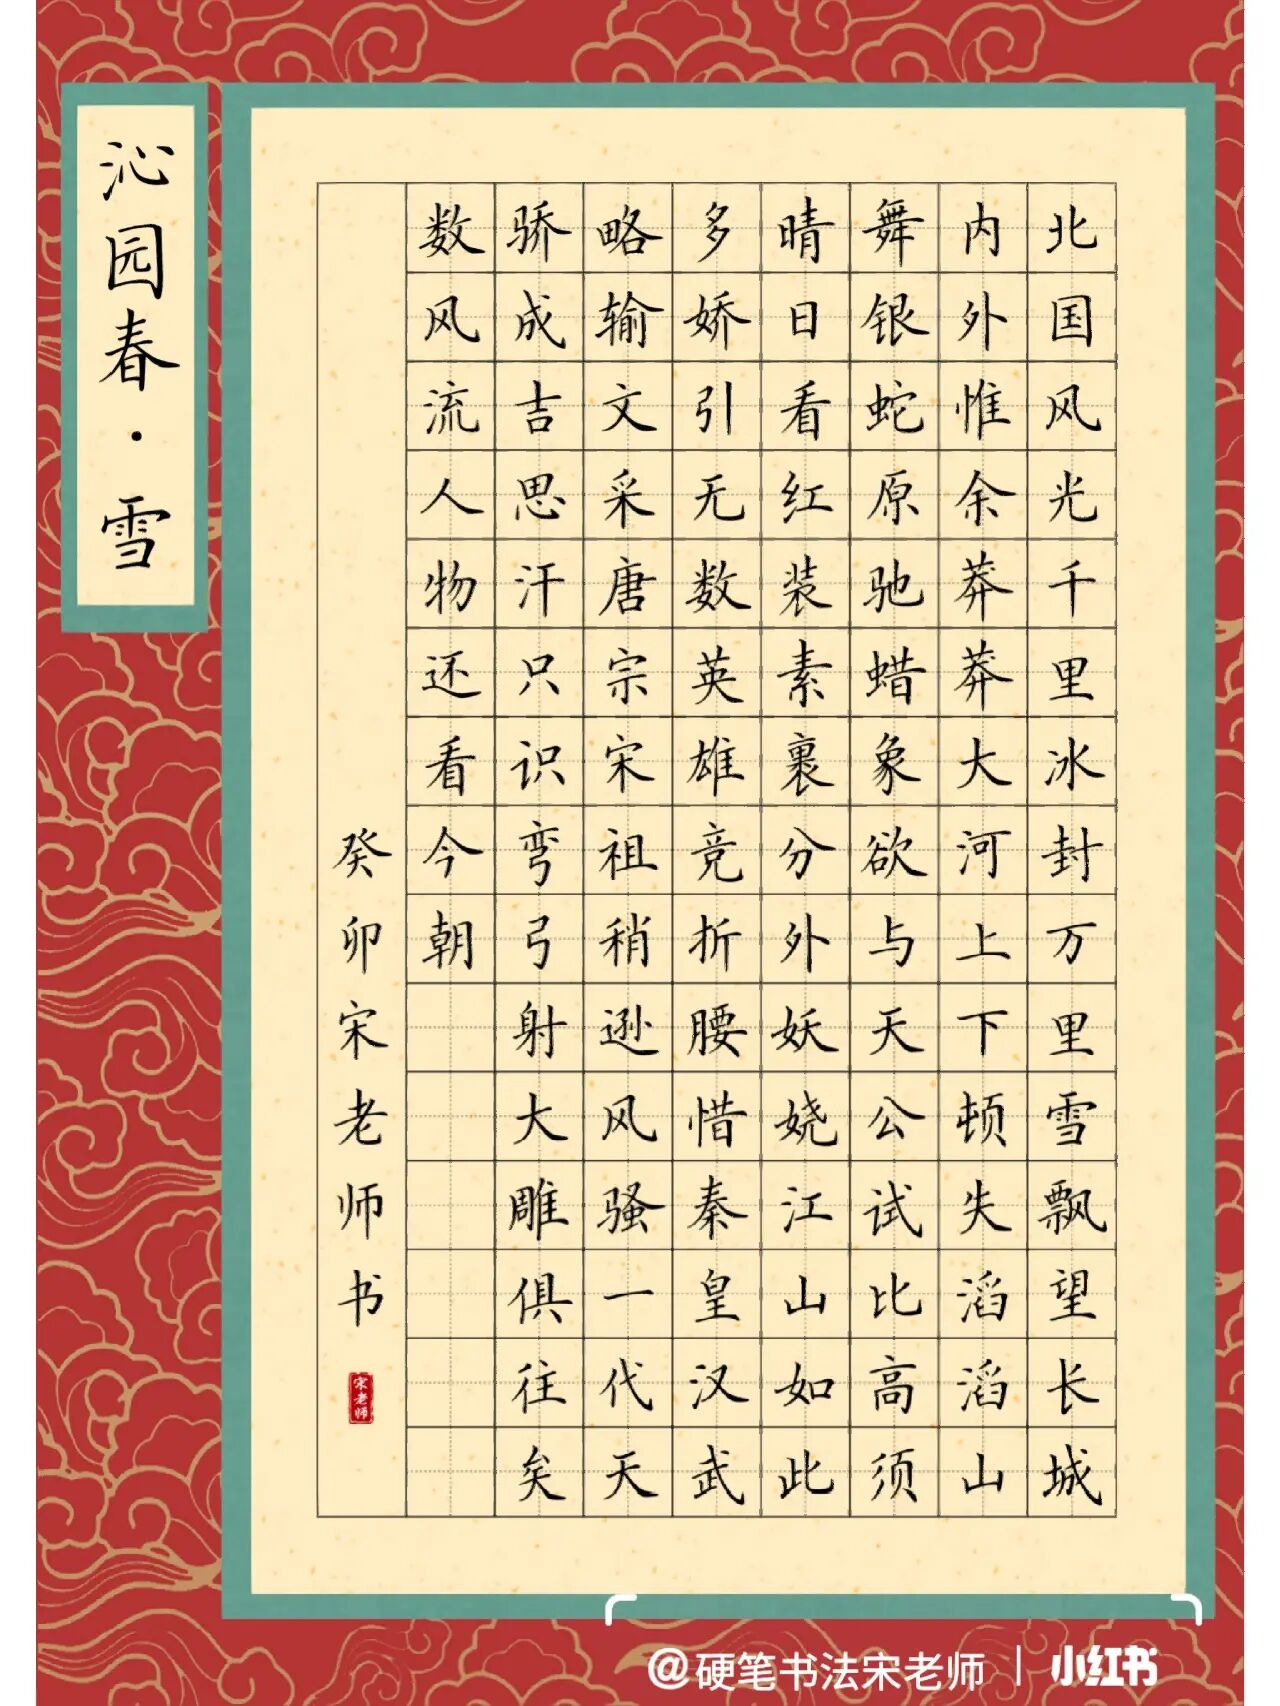 沁园春·雪
北国风光千里冰封万里雪飘望长城
内外惟余莽莽大河上下顿失滔滔山
舞银蛇原驰蜡象欲与天公试比高须
晴日看红装素裹分外妖娆江山如此
多娇引无数英雄竞折腰惜秦皇汉武
略输文采唐宗宋祖稍逊风骚一代天
骄成吉思汗只识弯弓射大雕俱往矣
数风流人物还看今朝
癸卯宋老师书
宋老师
@硬笔书法宋老师 | 小红书